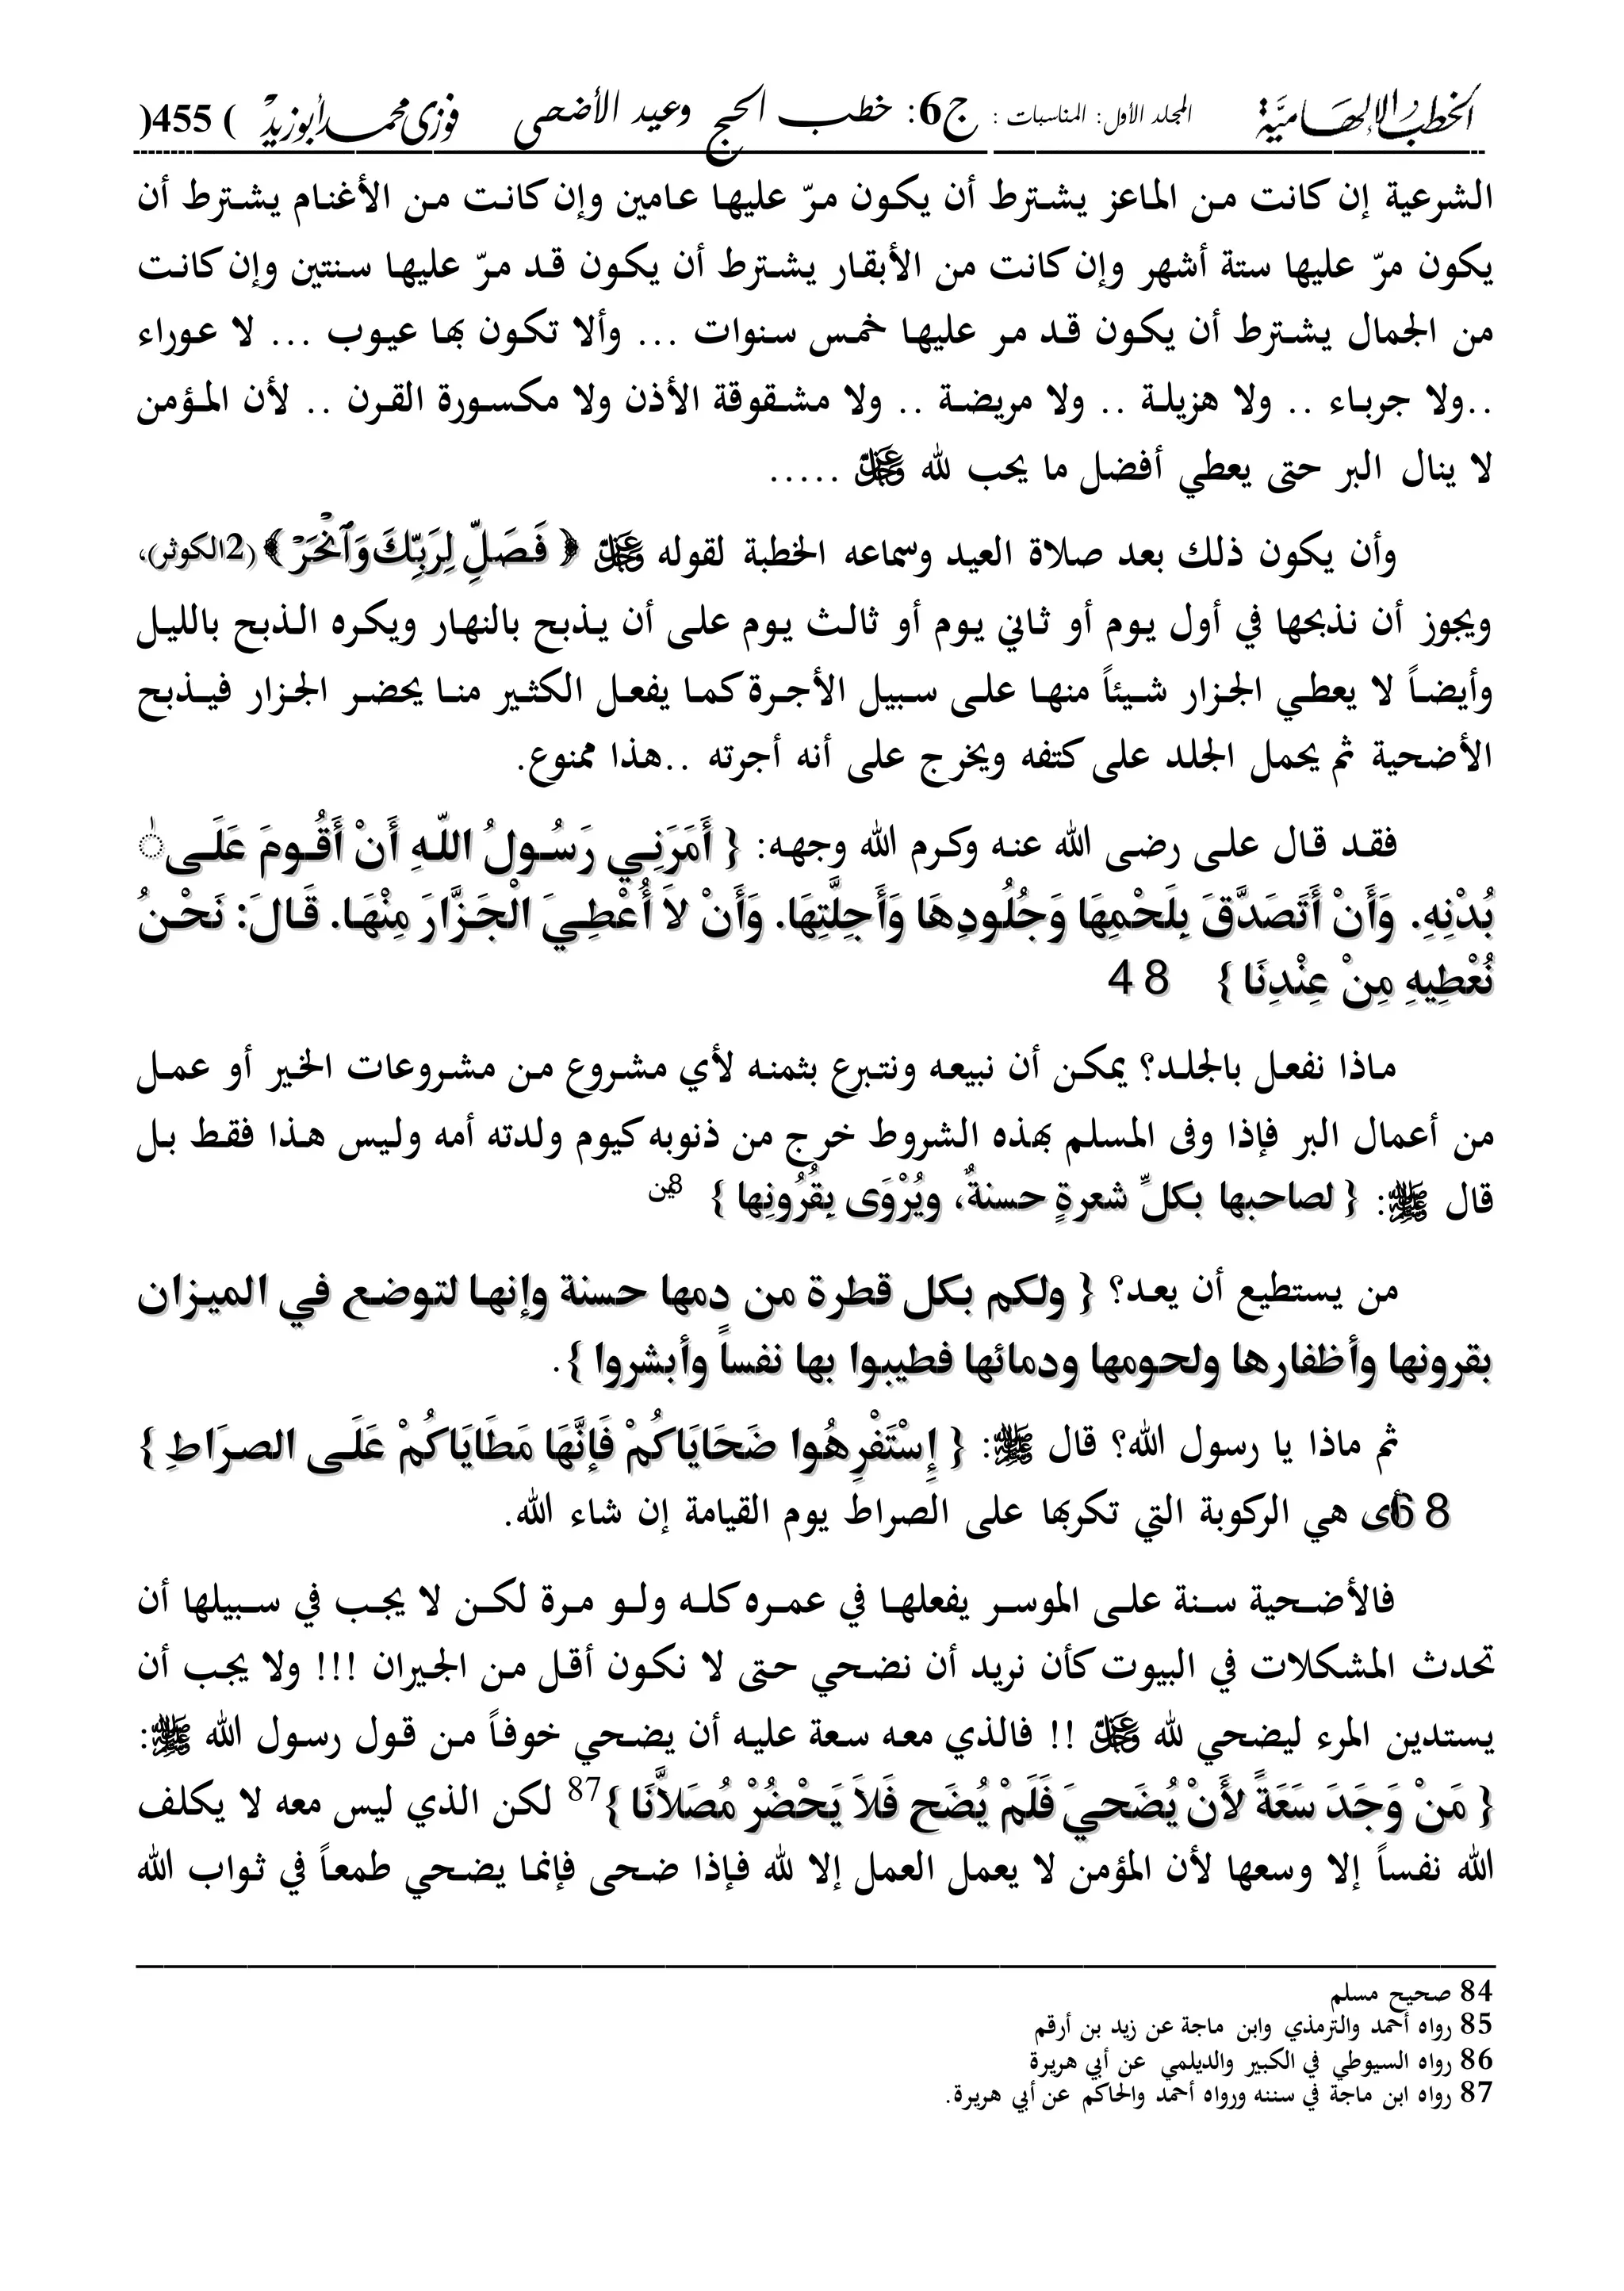 الخطب الإلهامية المجلد الأول: المناسبات : ج6: خطب الحج وعيد الأضحى فوزى محمد أبوزيد (455)
الشرعية إن كانت من الماعز يشترط أن يكون مرّ عليها عامين وإن كانت من الأغنام يشترط أن
يكون مرّ عليها ستة أشهر وإن كانت من الأبقار يشترط أن يكون قد مرّ عليها سنتين وإن كانت
من الجمال يشترط أن يكون قد مر عليها خمس سنوات ... وألا تكون بها عيوب ... لا عوراء
..ولا جرباء .. ولا هزيلة .. ولا مريضة .. ولا مشقوقة الأذن ولا مكسورة القرن .. لأن المؤمن
لا ينال البر حتى يعطي أفضل ما يحب لله عز وجل .....
وأن يكون ذلك بعد صلاة العيد وسماعه الخطبة لقوله عز وجل ﴿ فَصَلِّ لِرَبِّكَ وَٱنْحَرْ ﴾ (2الكوثر)،
ويجوز أن نذبحها في أول يوم أو ثاني يوم أو ثالث يوم على أن يذبح بالنهار ويكره الذبح بالليل
وأيضاً لا يعطي الجزار شيئاً منها على سبيل الأجرة كما يفعل الكثير منا يحضر الجزار فيذبح
الأضحية ثم يحمل الجلد على كتفه ويخرج على أنه أجرته ..هذا ممنوع.
فقد قال على رضى الله عنه وكرم الله وجهه: { أَمَرَنِي رَسُولُ اللّهِ أَنْ أَقُومَ عَلَىٰ
بُدْنِهِ. وَأَنْ أَتَصَدَّقَ بِلَحْمِهَا وَجُلُودِهَا وَأَجِلَّتِهَا. وَأَنْ لاَ أُعْطِيَ الْجَزَّارَ مِنْهَا. قَالَ: نَحْنُ
نُعْطِيهِ مِنْ عِنْدِنَا } 48
ماذا نفعل بالجلد؟ يمكن أن نبيعه ونتبرع بثمنه لأي مشروع من مشروعات الخير أو عمل
من أعمال البر فإذا وفى المسلم بهذه الشروط خرج من ذنوبه كيوم ولدته أمه وليس هذا فقط بل
قال ﷺ: { لصاحبها بكلِّ شعرةٍ حسنةٌ، ويُرْوَى بِقُرُونِها }
من يستطيع أن يعد؟ { ولكم بكل قطرة من دمها حسنة وإنها لتوضع في الميزان
بقرونها وأظفارها ولحومها ودمائها فطيبوا بها نفساً وأبشروا }.
ثم ماذا يا رسول الله؟ قال ﷺ: { إِسْتَفْرِهُوا ضَحَايَاكُمْ فَإِنَّهَا مَطَايَاكُمْ عَلَى الصرَاطِ }
68 أى هي الركوبة التي تكربها على الصراط يوم القيامة إن شاء الله.
فالأضحية سنة على الموسر يفعلها في عمره كله ولو مرة لكن لا يجب في سبيلها أن
تحدث المشكلات في البيوت كأن نريد أن نضحي حتى لا نكون أقل من الجيران !!! ولا يجب أن
يستدين المرء ليضحي لله عز وجل !! فالذي معه سعة عليه أن يضحي خوفاً من قول رسول الله ﷺ:
{ مَنْ وَجَدَ سَعَةً لأَنْ يُضَحيَ فَلَمْ يُضَح فَلاَ يَحْضُرْ مُصَلاَّنَا }87 لكن الذي ليس معه لا يكلف
الله نفساً إلا وسعها لأن المؤمن لا يعمل العمل إلا لله فإذا ضحى فإنما يضحي طمعاً في ثواب الله
84 صحيح مسلم
85 رواه أحمد والترمذي وابن ماجة عن زيد بن أرقم
86 رواه السيوطي في الكبير والديلمي عن أبي هريرة
87 رواه ابن ماجة في سننه ورواه أحمد والحاكم عن أبي هريرة.